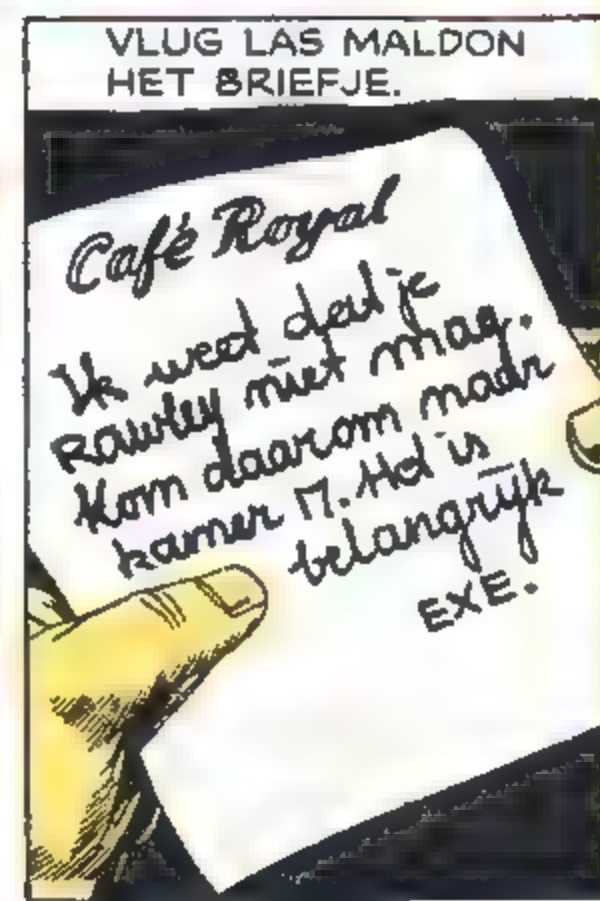 VLUG LAS MALDON
HET BRIEFJE.
Café Royal
Ik weet dat je
Rawley niet mag.
Kom daarom naar
kamer 17. Het is
belangrijk
EXE.